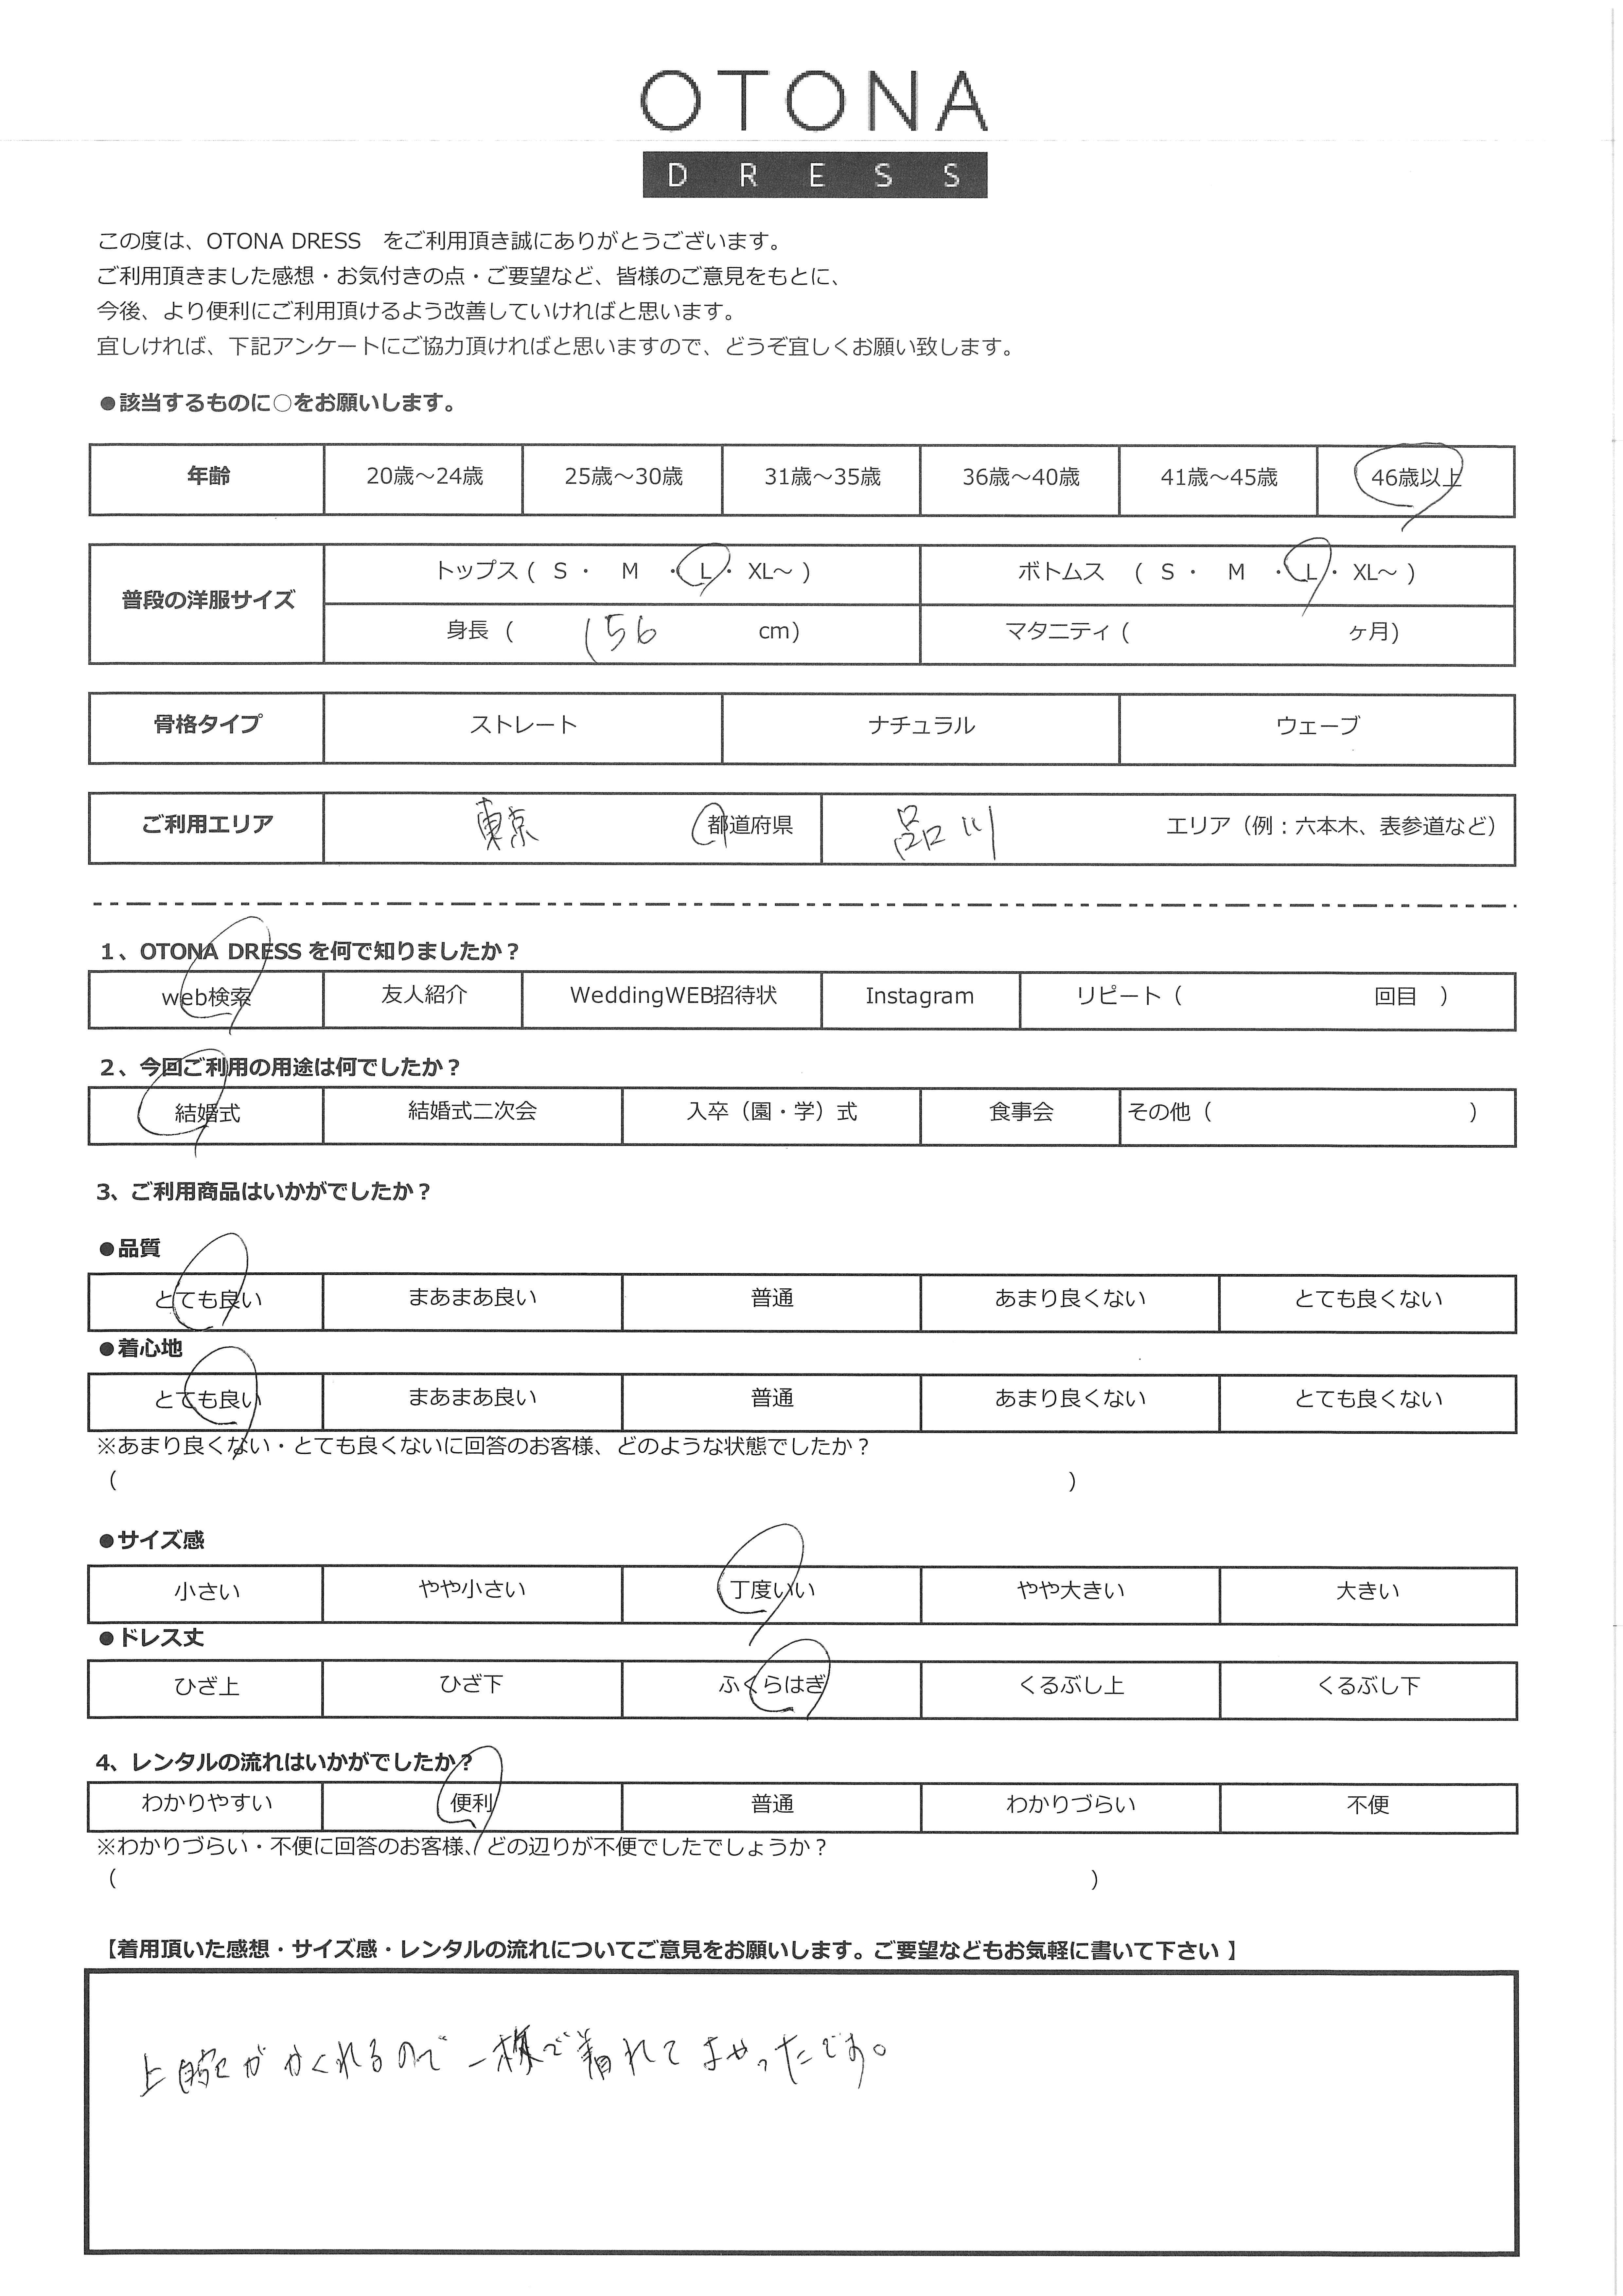 OTONA
DRESS
この度は、OTONA DRESS　をご利用頂き誠にありがとうございます。
ご利用頂きました感想・お気付きの点・ご要望など、皆様のご意見をもとに、
今後、より便利にご利用頂けるよう改善していければと思います。
宜しければ、下記アンケートにご協力頂ければと思いますので、どうぞ宜しくお願い致します。
●該当するものに○をお願いします。
年齢 20歳～24歳 25歳～30歳 31歳～35歳 36歳～40歳 41歳～45歳 46歳以上
普段の洋服サイズ
トップス ( S ・ M ・ L ・ XL～ ) ボトムス ( S ・ M ・ L ・ XL～ )
身長 ( 156 cm) マタニティ ( ヶ月)
骨格タイプ ストレート ナチュラル ウェーブ
ご利用エリア 東京 都道府県 品川 エリア（例：六本木、表参道など）
1、OTONA DRESS を何で知りましたか？
web検索 友人紹介 WeddingWEB招待状 Instagram リピート（ 回目 ）
2、今回ご利用の用途は何でしたか？
結婚式 結婚式二次会 入卒（園・学）式 食事会 その他（ ）
3、ご利用商品はいかがでしたか？
●品質
とても良い まあまあ良い 普通 あまり良くない とても良くない
●着心地
とても良い まあまあ良い 普通 あまり良くない とても良くない
※あまり良くない・とても良くないに回答のお客様、どのような状態でしたか？
（ ）
●サイズ感
小さい やや小さい 丁度いい やや大きい 大きい
●ドレス丈
ひざ上 ひざ下 ふくらはぎ くるぶし上 くるぶし下
4、レンタルの流れはいかがでしたか？
わかりやすい 便利 普通 わかりづらい 不便
※わかりづらい・不便に回答のお客様、どの辺りが不便でしたでしょうか？
（ ）
【着用頂いた感想・サイズ感・レンタルの流れについてご意見をお願いします。ご要望などもお気軽に書いて下さい 】
上腕がかくれるので一枚で着れてよかったです。